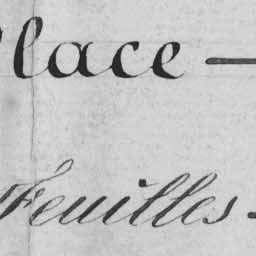 Place —
Feuilles -